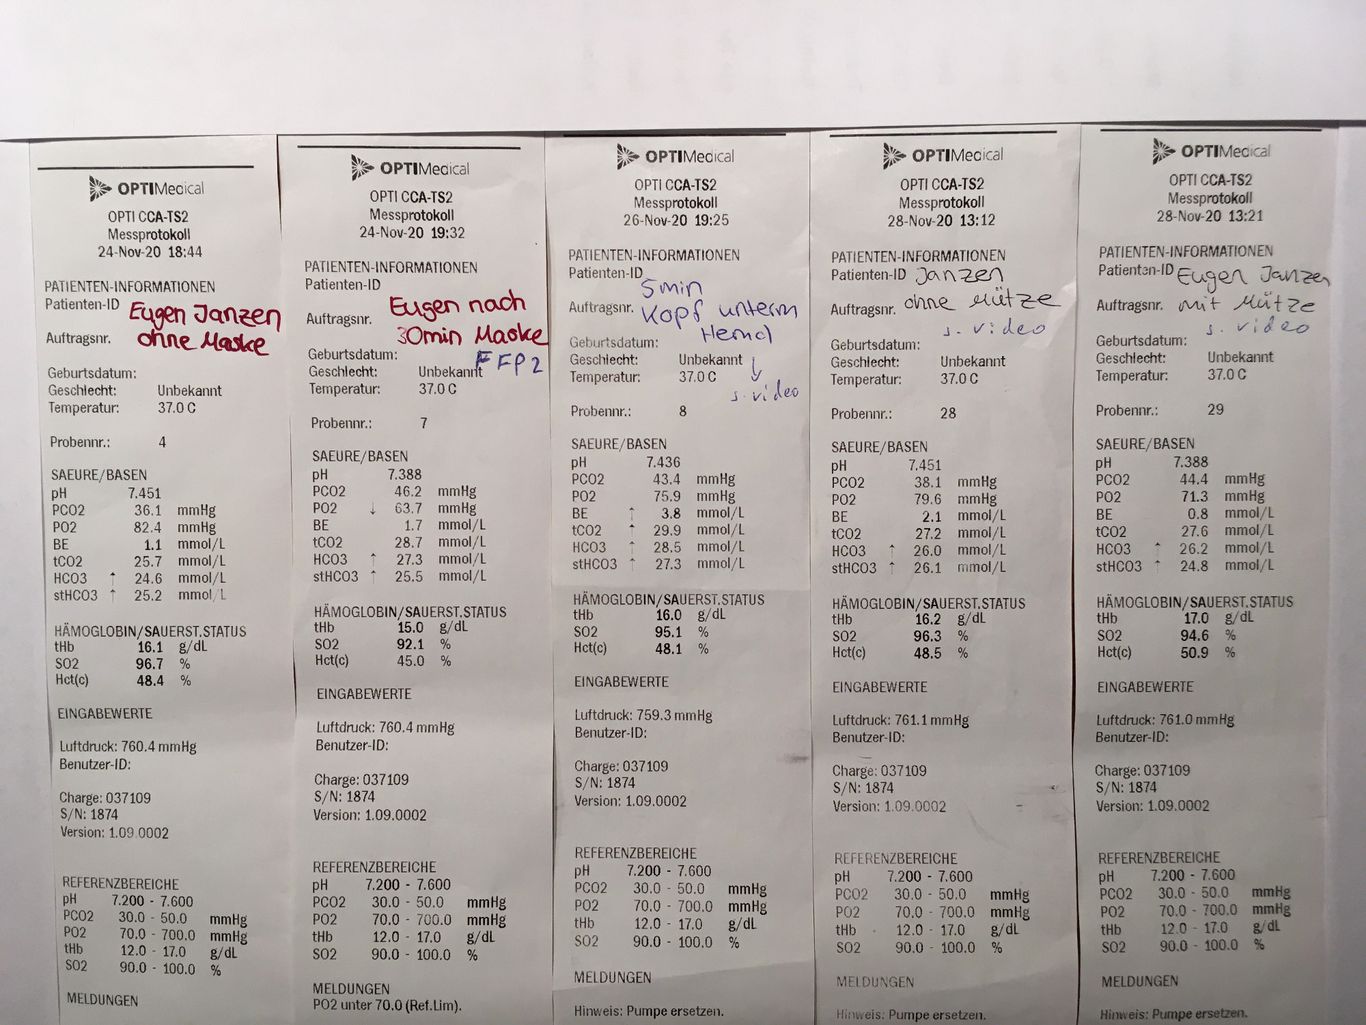 OPTIMedical
OPTI CCA-TS2
Messprotokoll
24-Nov-20 18:44
PATIENTEN-INFORMATIONEN
Patienten-ID
Eugen Janzen
Auftragsnr. ohne Maske
Geburtsdatum:
Geschlecht: Unbekannt
Temperatur: 37.0 C
Probennr.: 4
SAEURE/BASEN
pH 7.451
PCO2 36.1 mmHg
PO2 82.4 mmHg
BE 1.1 mmol/L
tCO2 25.7 mmol/L
HCO3 ↑ 24.6 mmol/L
stHCO3 ↑ 25.2 mmol/L
HÄMOGLOBIN/SAUERST.STATUS
tHb 16.1 g/dL
SO2 96.7 %
Hct(c) 48.4 %
EINGABEWERTE
Luftdruck: 760.4 mmHg
Benutzer-ID:
Charge: 037109
S/N: 1874
Version: 1.09.0002
REFERENZBEREICHE
pH 7.200 - 7.600
PCO2 30.0 - 50.0 mmHg
PO2 70.0 - 700.0 mmHg
tHb 12.0 - 17.0 g/dL
SO2 90.0 - 100.0 %
MELDUNGEN
OPTIMedical
OPTI CCA-TS2
Messprotokoll
24-Nov-20 19:32
PATIENTEN-INFORMATIONEN
Patienten-ID
Eugen nach
Auftragsnr.
30min Maske
Geburtsdatum: FFP2
Geschlecht: Unbekannt
Temperatur: 37.0 C
Probennr.: 7
SAEURE/BASEN
pH 7.388
PCO2 46.2 mmHg
PO2 ↓ 63.7 mmHg
BE 1.7 mmol/L
tCO2 28.7 mmol/L
HCO3 ↑ 27.3 mmol/L
stHCO3 ↑ 25.5 mmol/L
HÄMOGLOBIN/SAUERST.STATUS
tHb 15.0 g/dL
SO2 92.1 %
Hct(c) 45.0 %
EINGABEWERTE
Luftdruck: 760.4 mmHg
Benutzer-ID:
Charge: 037109
S/N: 1874
Version: 1.09.0002
REFERENZBEREICHE
pH 7.200 - 7.600
PCO2 30.0 - 50.0 mmHg
PO2 70.0 - 700.0 mmHg
tHb 12.0 - 17.0 g/dL
SO2 90.0 - 100.0 %
MELDUNGEN
PO2 unter 70.0 (Ref.Lim).
OPTIMedical
OPTI CCA-TS2
Messprotokoll
26-Nov-20 19:25
PATIENTEN-INFORMATIONEN
Patienten-ID
5min
Auftragsnr. Kopf unterm
Hemd
Geburtsdatum:
Geschlecht: Unbekannt ↓
Temperatur: 37.0 C
s. video
Probennr.: 8
SAEURE/BASEN
pH 7.436
PCO2 43.4 mmHg
PO2 75.9 mmHg
BE ↑ 3.8 mmol/L
tCO2 ↑ 29.9 mmol/L
HCO3 ↑ 28.5 mmol/L
stHCO3 ↑ 27.3 mmol/L
HÄMOGLOBIN/SAUERST.STATUS
tHb 16.0 g/dL
SO2 95.1 %
Hct(c) 48.1 %
EINGABEWERTE
Luftdruck: 759.3 mmHg
Benutzer-ID:
Charge: 037109
S/N: 1874
Version: 1.09.0002
REFERENZBEREICHE
pH 7.200 - 7.600
PCO2 30.0 - 50.0 mmHg
PO2 70.0 - 700.0 mmHg
tHb 12.0 - 17.0 g/dL
SO2 90.0 - 100.0 %
MELDUNGEN
Hinweis: Pumpe ersetzen.
OPTIMedical
OPTI CCA-TS2
Messprotokoll
28-Nov-20 13:12
PATIENTEN-INFORMATIONEN
Patienten-ID Janzen
Auftragsnr. ohne Mütze
s. video
Geburtsdatum:
Geschlecht: Unbekannt
Temperatur: 37.0 C
Probennr.: 28
SAEURE/BASEN
pH 7.451
PCO2 38.1 mmHg
PO2 79.6 mmHg
BE 2.1 mmol/L
tCO2 27.2 mmol/L
HCO3 ↑ 26.0 mmol/L
stHCO3 ↑ 26.1 mmol/L
HÄMOGLOBIN/SAUERST.STATUS
tHb 16.2 g/dL
SO2 96.3 %
Hct(c) 48.5 %
EINGABEWERTE
Luftdruck: 761.1 mmHg
Benutzer-ID:
Charge: 037109
S/N: 1874
Version: 1.09.0002
REFERENZBEREICHE
pH 7.200 - 7.600
PCO2 30.0 - 50.0 mmHg
PO2 70.0 - 700.0 mmHg
tHb 12.0 - 17.0 g/dL
SO2 90.0 - 100.0 %
MELDUNGEN
Hinweis: Pumpe ersetzen.
OPTIMedical
OPTI CCA-TS2
Messprotokoll
28-Nov-20 13:21
PATIENTEN-INFORMATIONEN
Patienten-ID Eugen Janzen
Auftragsnr. mit Mütze
s. video
Geburtsdatum:
Geschlecht: Unbekannt
Temperatur: 37.0 C
Probennr.: 29
SAEURE/BASEN
pH 7.388
PCO2 44.4 mmHg
PO2 71.3 mmHg
BE 0.8 mmol/L
tCO2 27.6 mmol/L
HCO3 ↑ 26.2 mmol/L
stHCO3 ↑ 24.8 mmol/L
HÄMOGLOBIN/SAUERST.STATUS
tHb 17.0 g/dL
SO2 94.6 %
Hct(c) 50.9 %
EINGABEWERTE
Luftdruck: 761.0 mmHg
Benutzer-ID:
Charge: 037109
S/N: 1874
Version: 1.09.0002
REFERENZBEREICHE
pH 7.200 - 7.600
PCO2 30.0 - 50.0 mmHg
PO2 70.0 - 700.0 mmHg
tHb 12.0 - 17.0 g/dL
SO2 90.0 - 100.0 %
MELDUNGEN
Hinweis: Pumpe ersetzen.